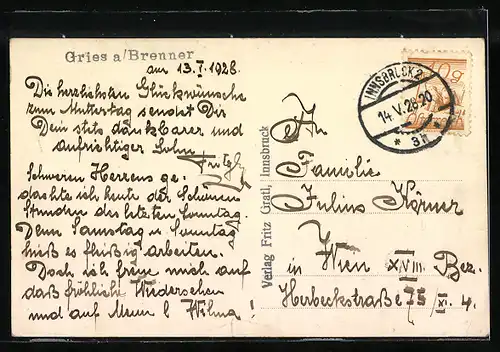 Gries a/Brenner
am 13.V.1928.
Die herzlichsten Glückwünsche
zum Muttertag sendet Dir
Dein stets dankbarer und
aufrichtiger Sohn
Fritz
Schweren Herzens ge-
dachte ich heute der schönen
Stunden des letzten Sonntag.
Denn Samstag u. Sonntag
hieß es fleißig arbeiten.
Doch ich freue mich auf
daß fröhliche Wiedersehen
und auf Wilma!
Verlag Fritz Gratl, Innsbruck
INNSBRUCK 2
14.V.28.20
* 3h *
An
Familie
Julius Körner
in Wien XVIII. Bez.
Herbeckstraße 75/XI. 4.